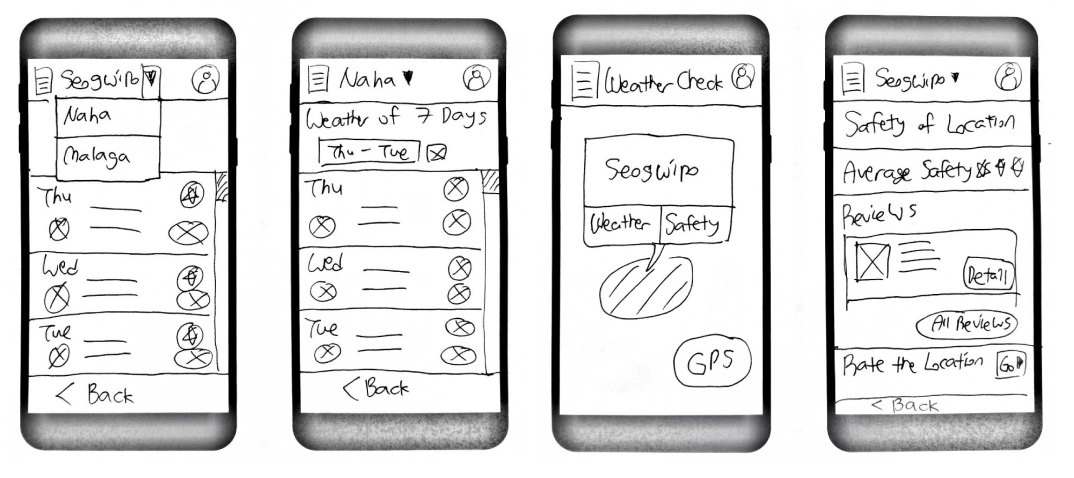 Seogwipo
Naha
Malaga
Thu
Wed
Tue
< Back
Naha
Weather of 7 Days
Thu - Tue
Thu
Wed
Tue
< Back
Weather Check
Seogwipo
Weather
Safety
GPS
Seogwipo
Safety of Location
Average Safety
Reviews
Detail
All Reviews
Rate the Location
Go
< Back